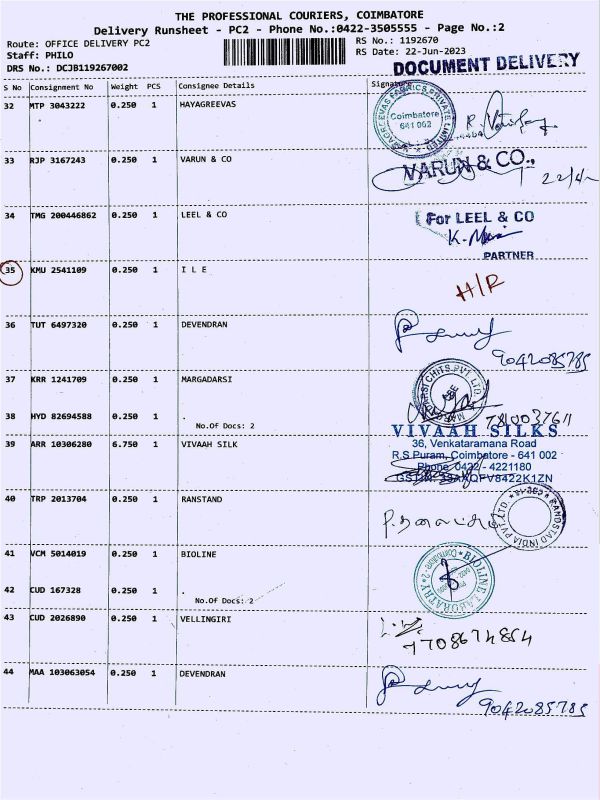 THE PROFESSIONAL COURIERS, COIMBATORE
Delivery Runsheet - PC2 - Phone No.:0422-3505555 - Page No.:2
Route: OFFICE DELIVERY PC2
RS No.: 1192670
Staff: PHILO
RS Date: 22-Jun-2023
DRS No.: DCJB119267002
DOCUMENT DELIVERY
S No Consignment No Weight PCS Consignee Details Signature
32 MTP 3043222 0.250 1 HAYAGREEVAS
Coimbatore
641 002
33 RJP 3167243 0.250 1 VARUN & CO
VARUN & CO.,
34 TMG 200446862 0.250 1 LEEL & CO
For LEEL & CO
PARTNER
35 KMU 2541109 0.250 1 I L E
H/R
36 TUT 6497320 0.250 1 DEVENDRAN
9042085785
37 KRR 1241709 0.250 1 MARGADARSI
38 HYD 82694588 0.250 1 .
No.Of Docs: 2
39 ARR 10306280 6.750 1 VIVAAH SILK
VIVAAH SILKS
36, Venkataramana Road
R.S Puram, Coimbatore - 641 002
Phone: 0422 - 4221180
40 TRP 2013704 0.250 1 RANSTAND
RANDSTAD INDIA PVT. LTD.
41 VCM 5014019 0.250 1 BIOLINE
BIOLINE LABORATRY
42 CUD 167328 0.250 1 .
No.Of Docs: 2
43 CUD 2026890 0.250 1 VELLINGIRI
7708674854
44 MAA 103063054 0.250 1 DEVENDRAN
9042085785